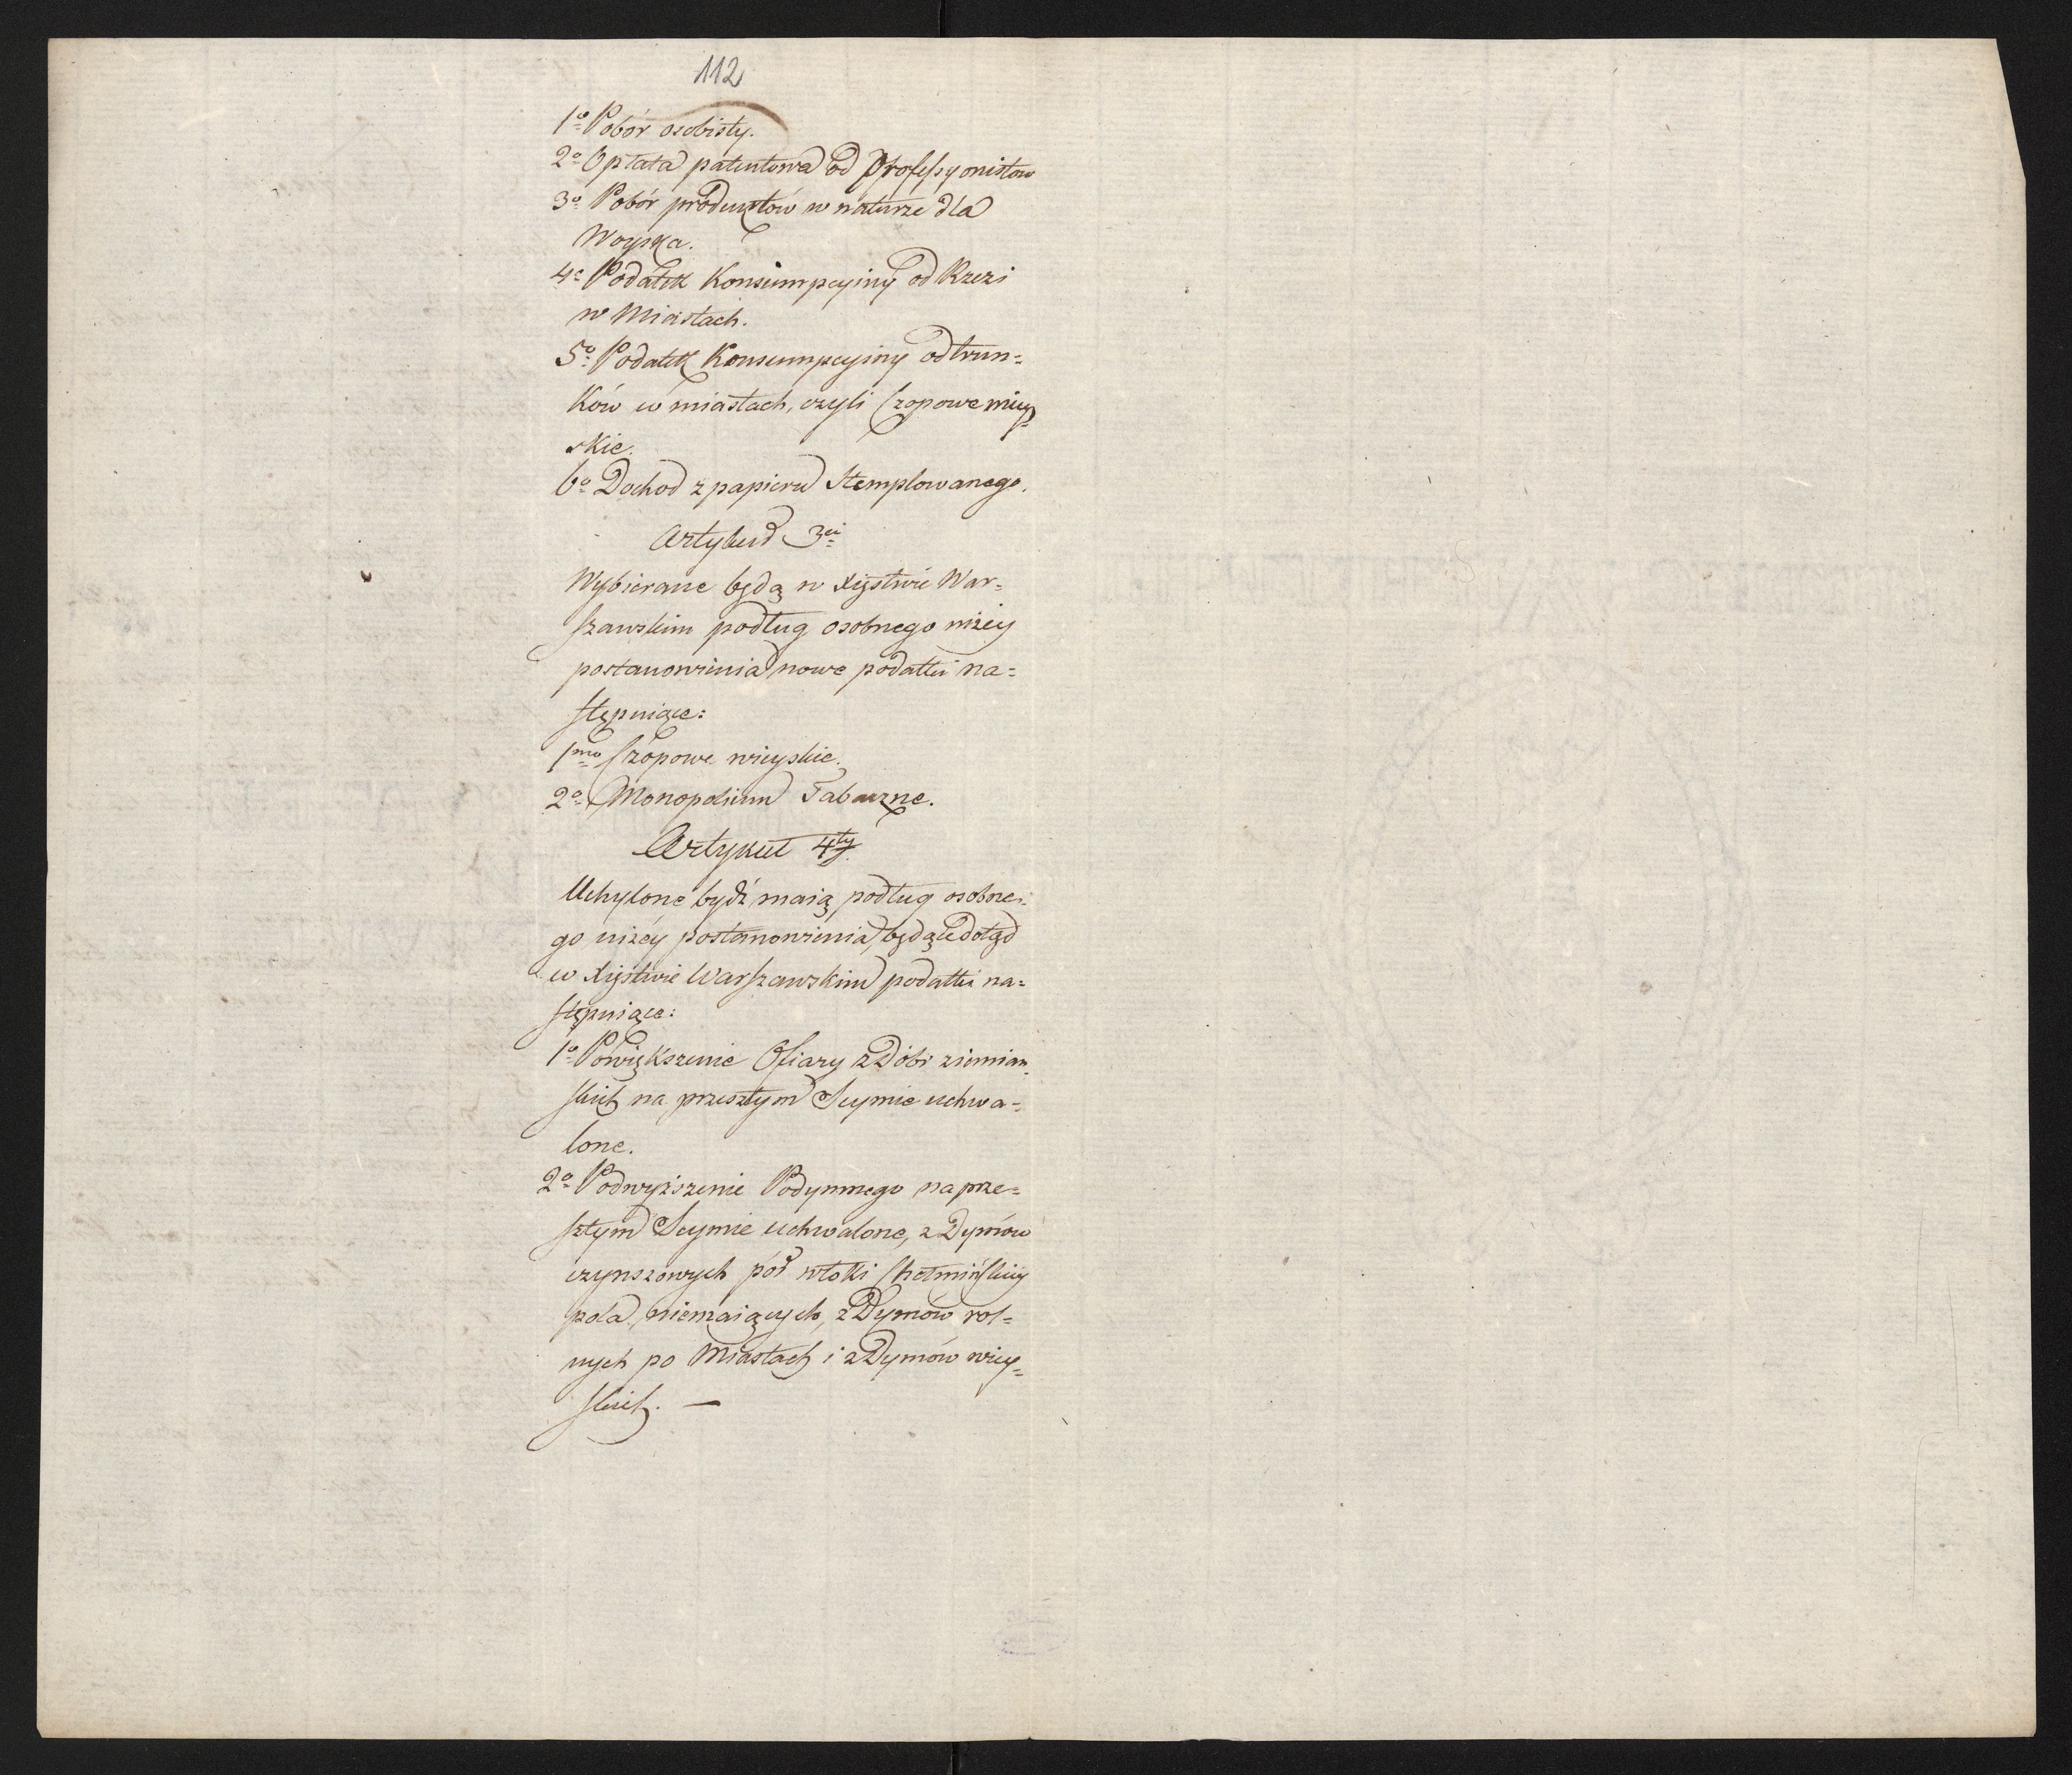 112
1o Pobór osobisty.
2o Opłata patentowa od Professyonistow
3o Pobór produktów w naturze dla
Woyska.
4o Podatek Konsumpcyiny od Rzezi
w Miastach.
5o Podatek Konsumpcyiny od trun=
ków w miastach, czyli Czopowe miey=
skie.
6o Dochod z papieru Stemplowanego.
Artykuł 3ci
Wybierane będą w Xięstwie War=
szawskim podług osobnego niżey
postanowienia nowe podatki na=
stępuiące:
1mo Czopowe wieyskie.
2o Monopolium Tabaczne.
Artykuł 4ty
Uchylone bydź maią podług osobne=
go niżéy postanowienia, będące dotąd
w Xięstwie Warszawskim podatki na=
stępuiące:
1o Powiększenie Ofiary z Dóbr ziemian=
skich na przeszłym Seymie uchwa=
lone.
2o Podwyższenie Podymnego na prze=
szłym Seymie uchwalone, z Dymów
czynszowych pół włoki Chełmińskiey
pola niemaiących, z Dymów rol=
nych po Miastach i z Dymów wiey=
skich. —